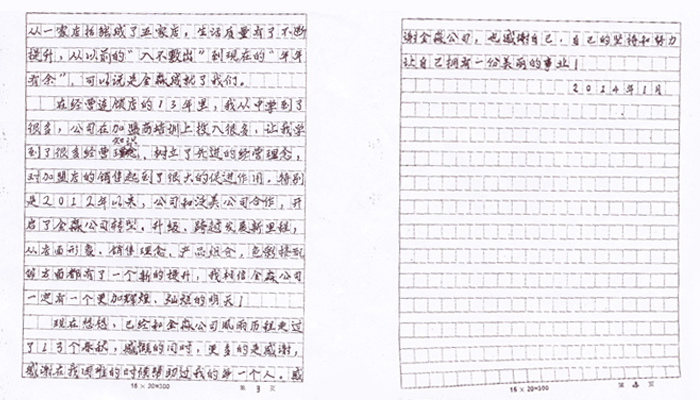 从一家店拓展成了五家店，生活质量有了不断
提升，从以前的“入不敷出”到现在的“年年
有余”，可以说是金淼成就了我们。
在经营连锁店的13年里，我从中学到了
很多，公司在加盟商培训上投入很多，让我学
到了很多经营知识，树立了先进的经营理念，
对加盟店的销售起到了很大的促进作用。特别
是2012年以来，公司和泛美公司合作，开
启了金淼公司转型、升级、跨越发展新里程，
从店面形象、销售理念、产品组合、色彩搭配
等方面都有了一个新的提升，我相信金淼公司
一定有一个更加辉煌、灿烂的明天！
现在想想，已经和金淼公司风雨历程走过
了13个春秋，感慨的同时，更多的是感谢，
感谢在我困难的时候帮助过我的每一个人。感
16×20=300 第 3 页
谢金淼公司，也感谢自己，自己的坚持和努力
让自己拥有一份美丽的事业！
2014年1月
16×20=300 第 4 页